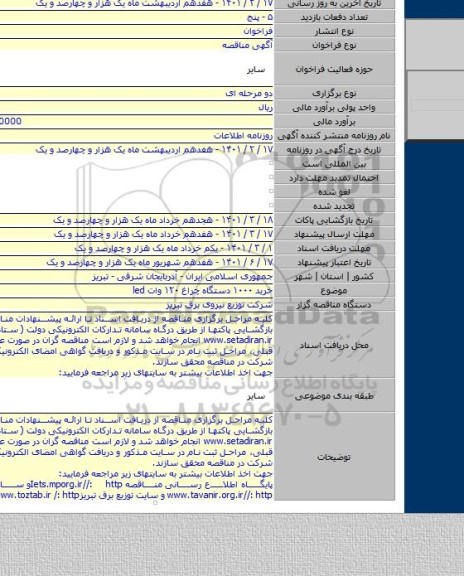 تاریخ آخرین به روز رسانی ۱۷ / ۲ / ۱۴۰۱ - هفدهم اردیبهشت ماه یک هزار و چهارصد و یک
تعداد دفعات بازدید ۵ - پنج
نوع انتشار فراخوان
نوع فراخوان آگهی مناقصه
حوزه فعالیت فراخوان سایر
نوع برگزاری دو مرحله ای
واحد پولی برآورد مالی ریال
برآورد مالی 0000
نام روزنامه منتشر کننده آگهی روزنامه اطلاعات
تاریخ درج آگهی در روزنامه ۱۷ / ۲ / ۱۴۰۱ - هفدهم اردیبهشت ماه یک هزار و چهارصد و یک
بین المللی است
احتمال تمدید مهلت دارد
لغو شده
تجدید شده
تاریخ بازگشایی پاکات ۱۸ / ۳ / ۱۴۰۱ - هجدهم خرداد ماه یک هزار و چهارصد و یک
مهلت ارسال پیشنهاد ۱۷ / ۳ / ۱۴۰۱ - هفدهم خرداد ماه یک هزار و چهارصد و یک
مهلت دریافت اسناد ۱ / ۳ / ۱۴۰۱ - یکم خرداد ماه یک هزار و چهارصد و یک
تاریخ اعتبار پیشنهاد ۱۷ / ۶ / ۱۴۰۱ - هفدهم شهریور ماه یک هزار و چهارصد و یک
کشور | استان | شهر جمهوری اسلامی ایران - آذربایجان شرقی - تبریز
موضوع خرید ۱۰۰۰ دستگاه چراغ ۱۲۰ وات led
دستگاه مناقصه گزار شرکت توزیع نیروی برق تبریز
محل دریافت اسناد کلیه مراحل برگزاری مناقصه از دریافت اسناد تا ارائه پیشنهادات مناق
بازگشایی پاکتها از طریق درگاه سامانه تدارکات الکترونیکی دولت ( ستاد
www.setadiran.ir انجام خواهد شد و لازم است مناقصه گران در صورت عد
قبلی، مراحل ثبت نام در سایت مذکور و دریافت گواهی امضای الکترونیک
شرکت در مناقصه محقق سازند.
جهت اخذ اطلاعات بیشتر به سایتهای زیر مراجعه فرمایید:
پایگاه اطلاع رسانی مناقصه و مزایده
طبقه بندی موضوعی سایر
۰۲۱-۸۸۳۴۹۶۷۰-۵
توضیحات کلیه مراحل برگزاری مناقصه از دریافت اسناد تا ارائه پیشنهادات مناق
بازگشایی پاکتها از طریق درگاه سامانه تدارکات الکترونیکی دولت ( ستاد
www.setadiran.ir انجام خواهد شد و لازم است مناقصه گران در صورت عد
قبلی، مراحل ثبت نام در سایت مذکور و دریافت گواهی امضای الکترونیک
شرکت در مناقصه محقق سازند.
جهت اخذ اطلاعات بیشتر به سایتهای زیر مراجعه فرمایید:
پایگاه اطلاع رسانی مناقصه http ://iets.mporg.ir
http ://www.tavanir.org.ir و سایت توزیع برق تبریز http ://www.toztab.ir